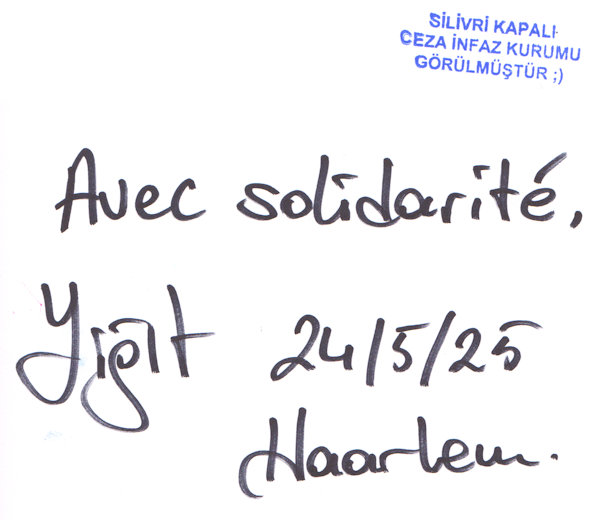 SİLİVRİ KAPALI
CEZA İNFAZ KURUMU
GÖRÜLMÜŞTÜR ;)
Avec solidarité,
Yiğit 24/5/25
Haarlem.